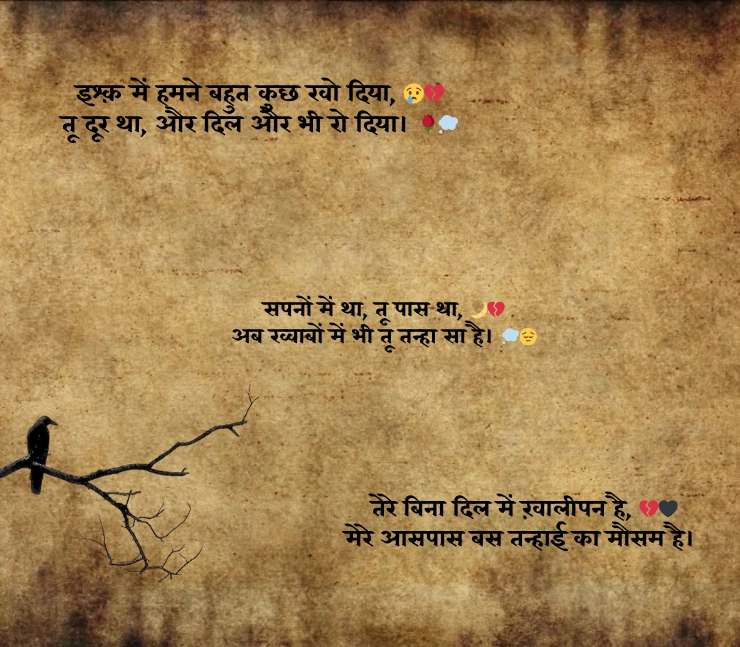 इश्क़ में हमने बहुत कुछ खो दिया, 😢💔
तू दूर था, और दिल और भी रो दिया। 🌹💭
सपनों में था, तू पास था, 🌙💔
अब ख्वाबों में भी तू तन्हा सा है। 💭😔
तेरे बिना दिल में ख़ालीपन है, 💔🖤
मेरे आसपास बस तन्हाई का मौसम है।